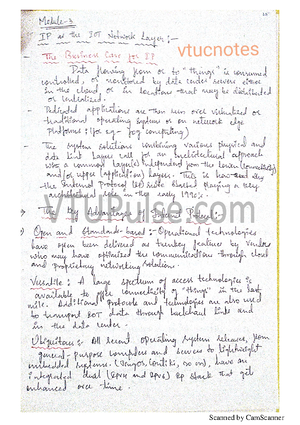 Module-3
vtucnotes
IP as the IOT Network Layer :-
→ The Business Case for IP
Data flowing from or to "things" is consumed
controlled, or monitored by data center servers either
in the cloud or in locations that may be distributed
or centralized.
- Dedicated applications are then run over virtualized or
traditional operating systems or on network edge
platforms (for eg - fog computing)
- The system solutions combining various physical and
data link layers call for an architectural approach
with a common layer(s) independent from the lower (connectivity)
and/or upper (application) layers. This is how and why
the Internet Protocol (IP) suite started playing a key
architectural role in the early 1990s.
VTUPulse.com
→ The Key Advantages of Internet Protocol :-
Open and standards-based :- Operational technologies
have often been delivered as turnkey features by vendors
who may have optimized the communications through closed
and proprietary networking solutions.
Versatile : A large spectrum of access technologies is
available to offer connectivity of "things" in the last
mile. Additional Protocols and technologies are also used
to transport IOT data through backhaul links and
in the data center.
Ubiquitous : All recent operating system releases, from
general-purpose computers and servers to lightweight
embedded systems (TinyOS, Contiki, so on), have an
integrated dual (IPv4 and IPv6) IP stack that gets
enhanced over time.
Scanned by CamScanner